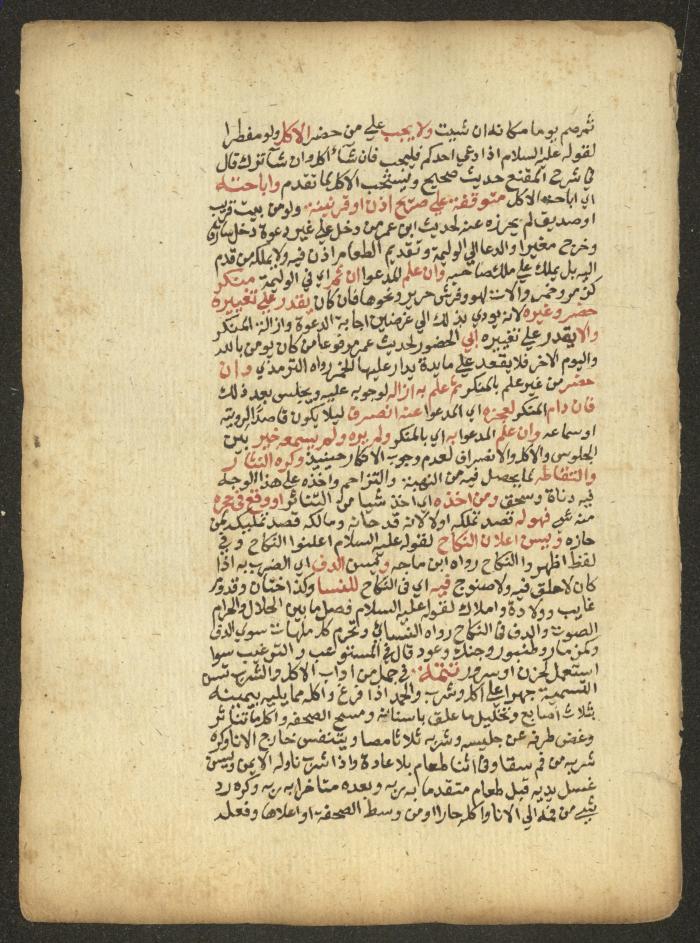 ثم صم يوما مكانه ان شيت ولا يجب على من حضر الاكل ولو مفطرا
لقوله عليه السلام اذا دعي احدكم فليجب فان شآء اكل وان شآ ترك قال
في شرح المقنع حديث صحيح ويستحب الاكل لما تقدم واباحته
اي اباحة الاكل متوقفة على صريح اذن او قرينة ولو من بيت قريب
او صديق لم يحرزه عنه لحديث ابن عمر من دخل على غير دعوة دخل سارقا
وخرج مغيرا والدعا الى الوليمة وتقديم الطعام اذن فيه ولا يملكه من قدم
اليه بل يملك على ملك صاحبه وان علم المدعوا ان ثم اي في الوليمة منكر
كزمر وخمر والات لهو وفرش حرير ونحوها فان كان يقدر على تغييره
حضر وغيره لانه يودي بذلك الى غرضين اجابة الدعوة وازالة المنكر
والا يقدر على تغييره ابي الحضور لحديث عمر مرفوعا من كان يومن بالله
واليوم الاخر فلا يقعد على مايدة يدار عليها الخمر رواه الترمذي وان
حضر من غير علم بالمنكر ثم علم به ازاله لوجوبه عليه ويجلس بعد ذلك
فان دام المنكر لعجزه اي المدعوا عنه انصرف ليلا يكون قاصدا لرويته
او سماعه وان علم المدعوا به اي بالمنكر ولم يره ولم يسمعه خير بين
الجلوس والاكل والانصراف لعدم وجوب الانكار حينيذ وكره النثار
والتقاطه لما يحصل فيه من النهبة والتزاحم واخذه على هذا الوجه
فيه دناة وسخف ومن اخذه اي اخذ شيا من النثار او وقع في حجره
منه شي فهو له قصد تملكه اولا لانه قد حازه ومالكه قصد تمليكه لمن
حازه ويسن اعلان النكاح لقوله عليه السلام اعلنوا النكاح وفي
لفظ اظهروا النكاح رواه ابن ماجه ويسن الدف اي الضرب به اذا
كان لا حلق فيه ولا صنوج فيه اي في النكاح للنسا وكذا ختان وقدوم
غايب وولادة واملاك لقوله عليه السلام فصل ما بين الحلال والحرام
الصوت والدف في النكاح رواه النسائي وتحرم كل ملهات سوى الدف
وكمزمار وطنبور وجنك وعود قال في المستوعب والترغيب سوا
استعمل لحزن او سرور تتمة في جمل من اداب الاكل والشرب تسن
التسمية جهرا على اكل وشرب والحمد اذا فرغ واكله مما يليه بيمينه
بثلاث اصابع وتخليل ما علق باسنانه ومسح الصحفة واكل ما تناثر
وغض طرفه عن جليسه وشربه ثلاثا مصا ويتنفس خارج الانا وكره
شربه من فم سقا وفي اثنا طعام بلا عادة واذا شرب ناوله الايمن ويسن
غسل يديه قبل طعام متقدما به ربه وبعده متاخرا به ربه وكره رد
شي من فمه الى الانا واكله حارا او من وسط الصحفة او اعلاها وفعله